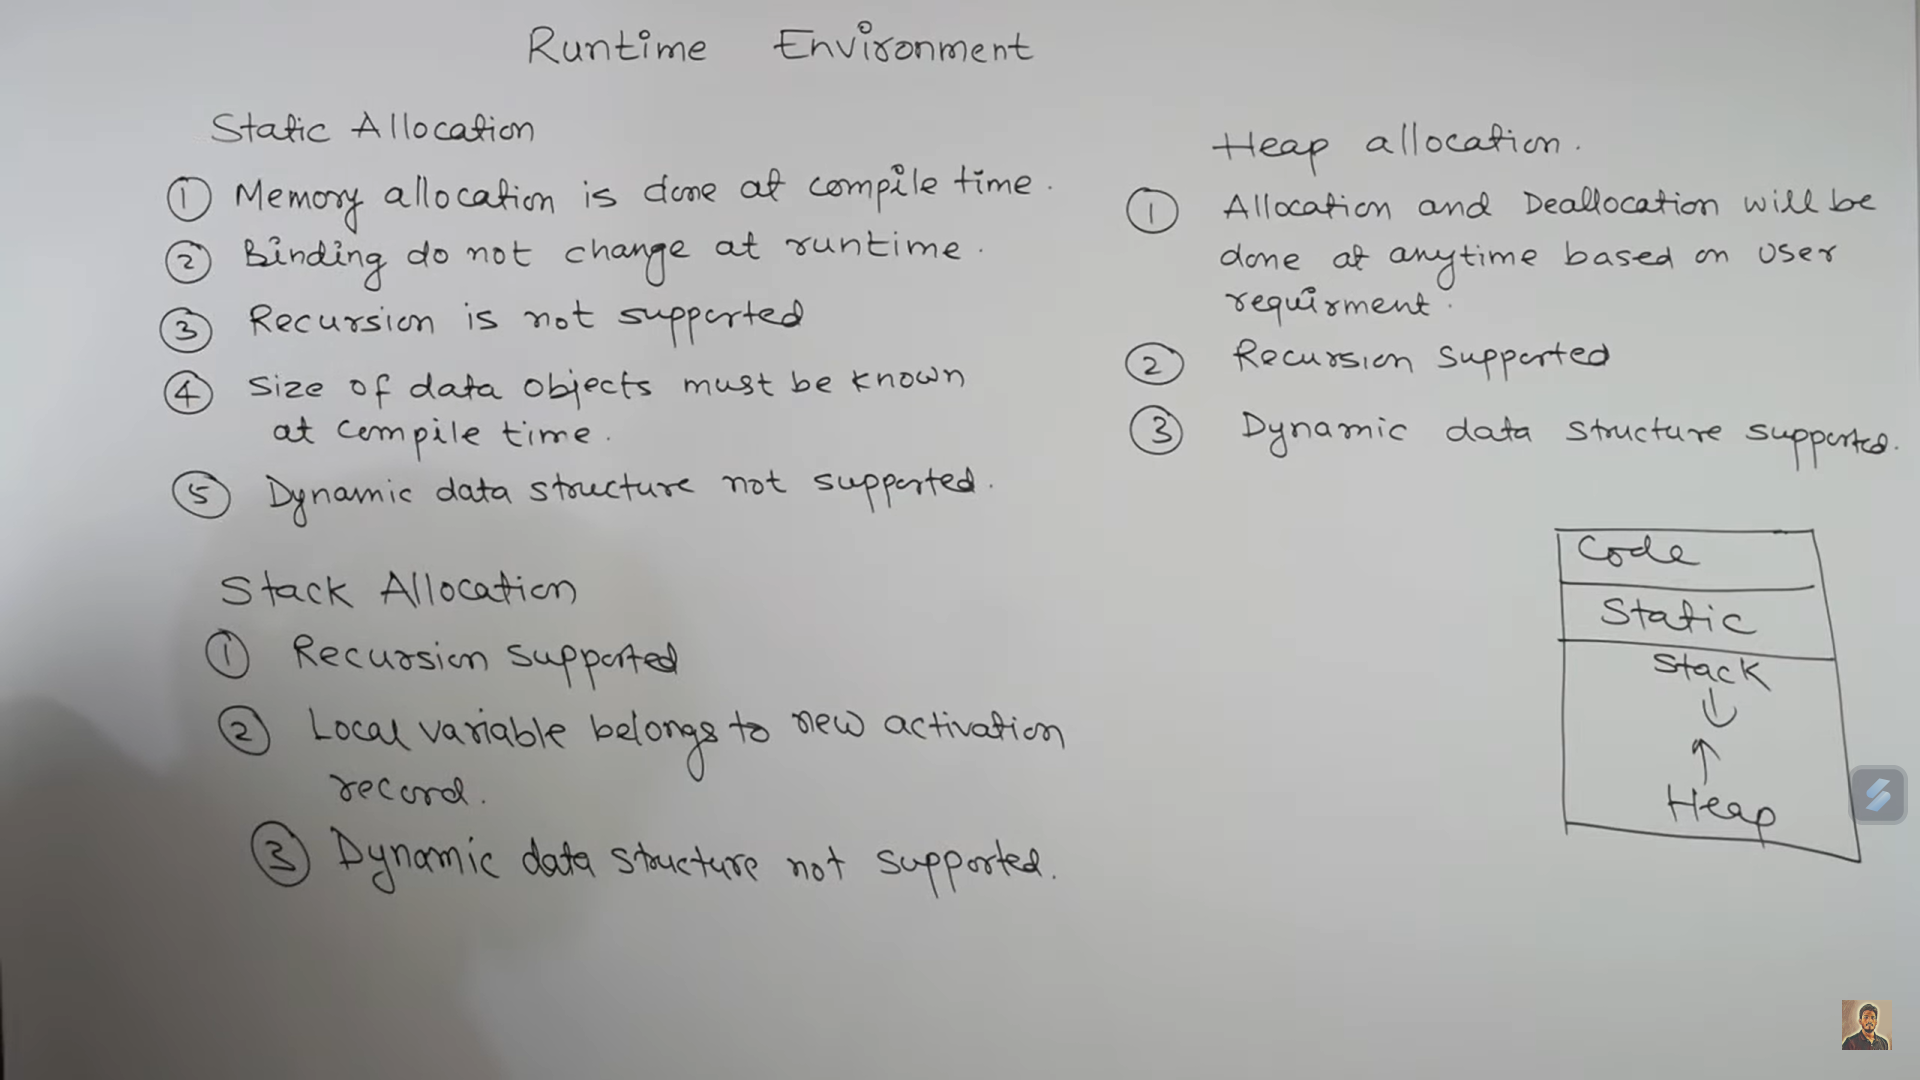 Runtime Environment
Static Allocation
① Memory allocation is done at compile time.
② Binding do not change at runtime.
③ Recursion is not supported
④ Size of data objects must be known
at compile time.
⑤ Dynamic data structure not supported.
Stack Allocation
① Recursion supported
② Local variable belongs to new activation
record.
③ Dynamic data structure not supported.
Heap allocation.
① Allocation and Deallocation will be
done at anytime based on user
requirment.
② Recursion supported
③ Dynamic data structure supported.
Code
Static
Stack
Heap